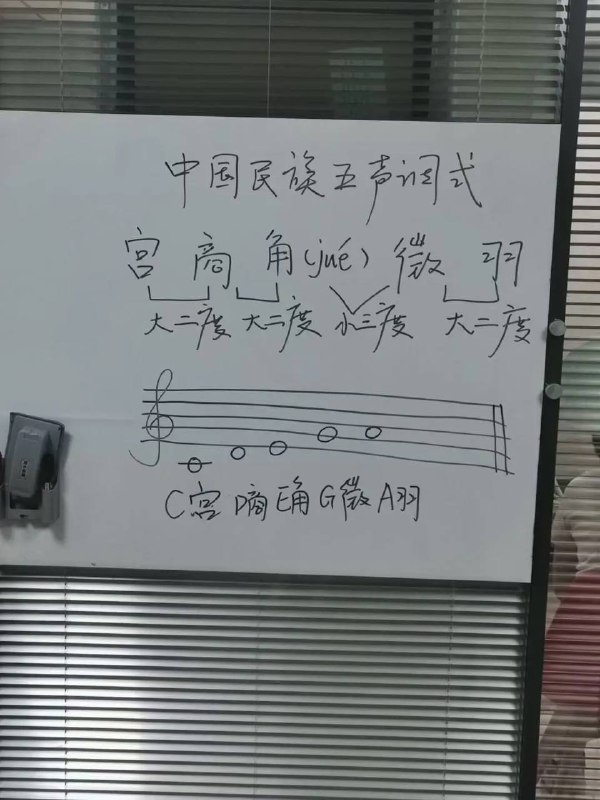 中国民族五声调式
宫 商 角(jué) 徵 羽
大二度 大二度 小三度 大二度
C宫 D商 E角 G徵 A羽